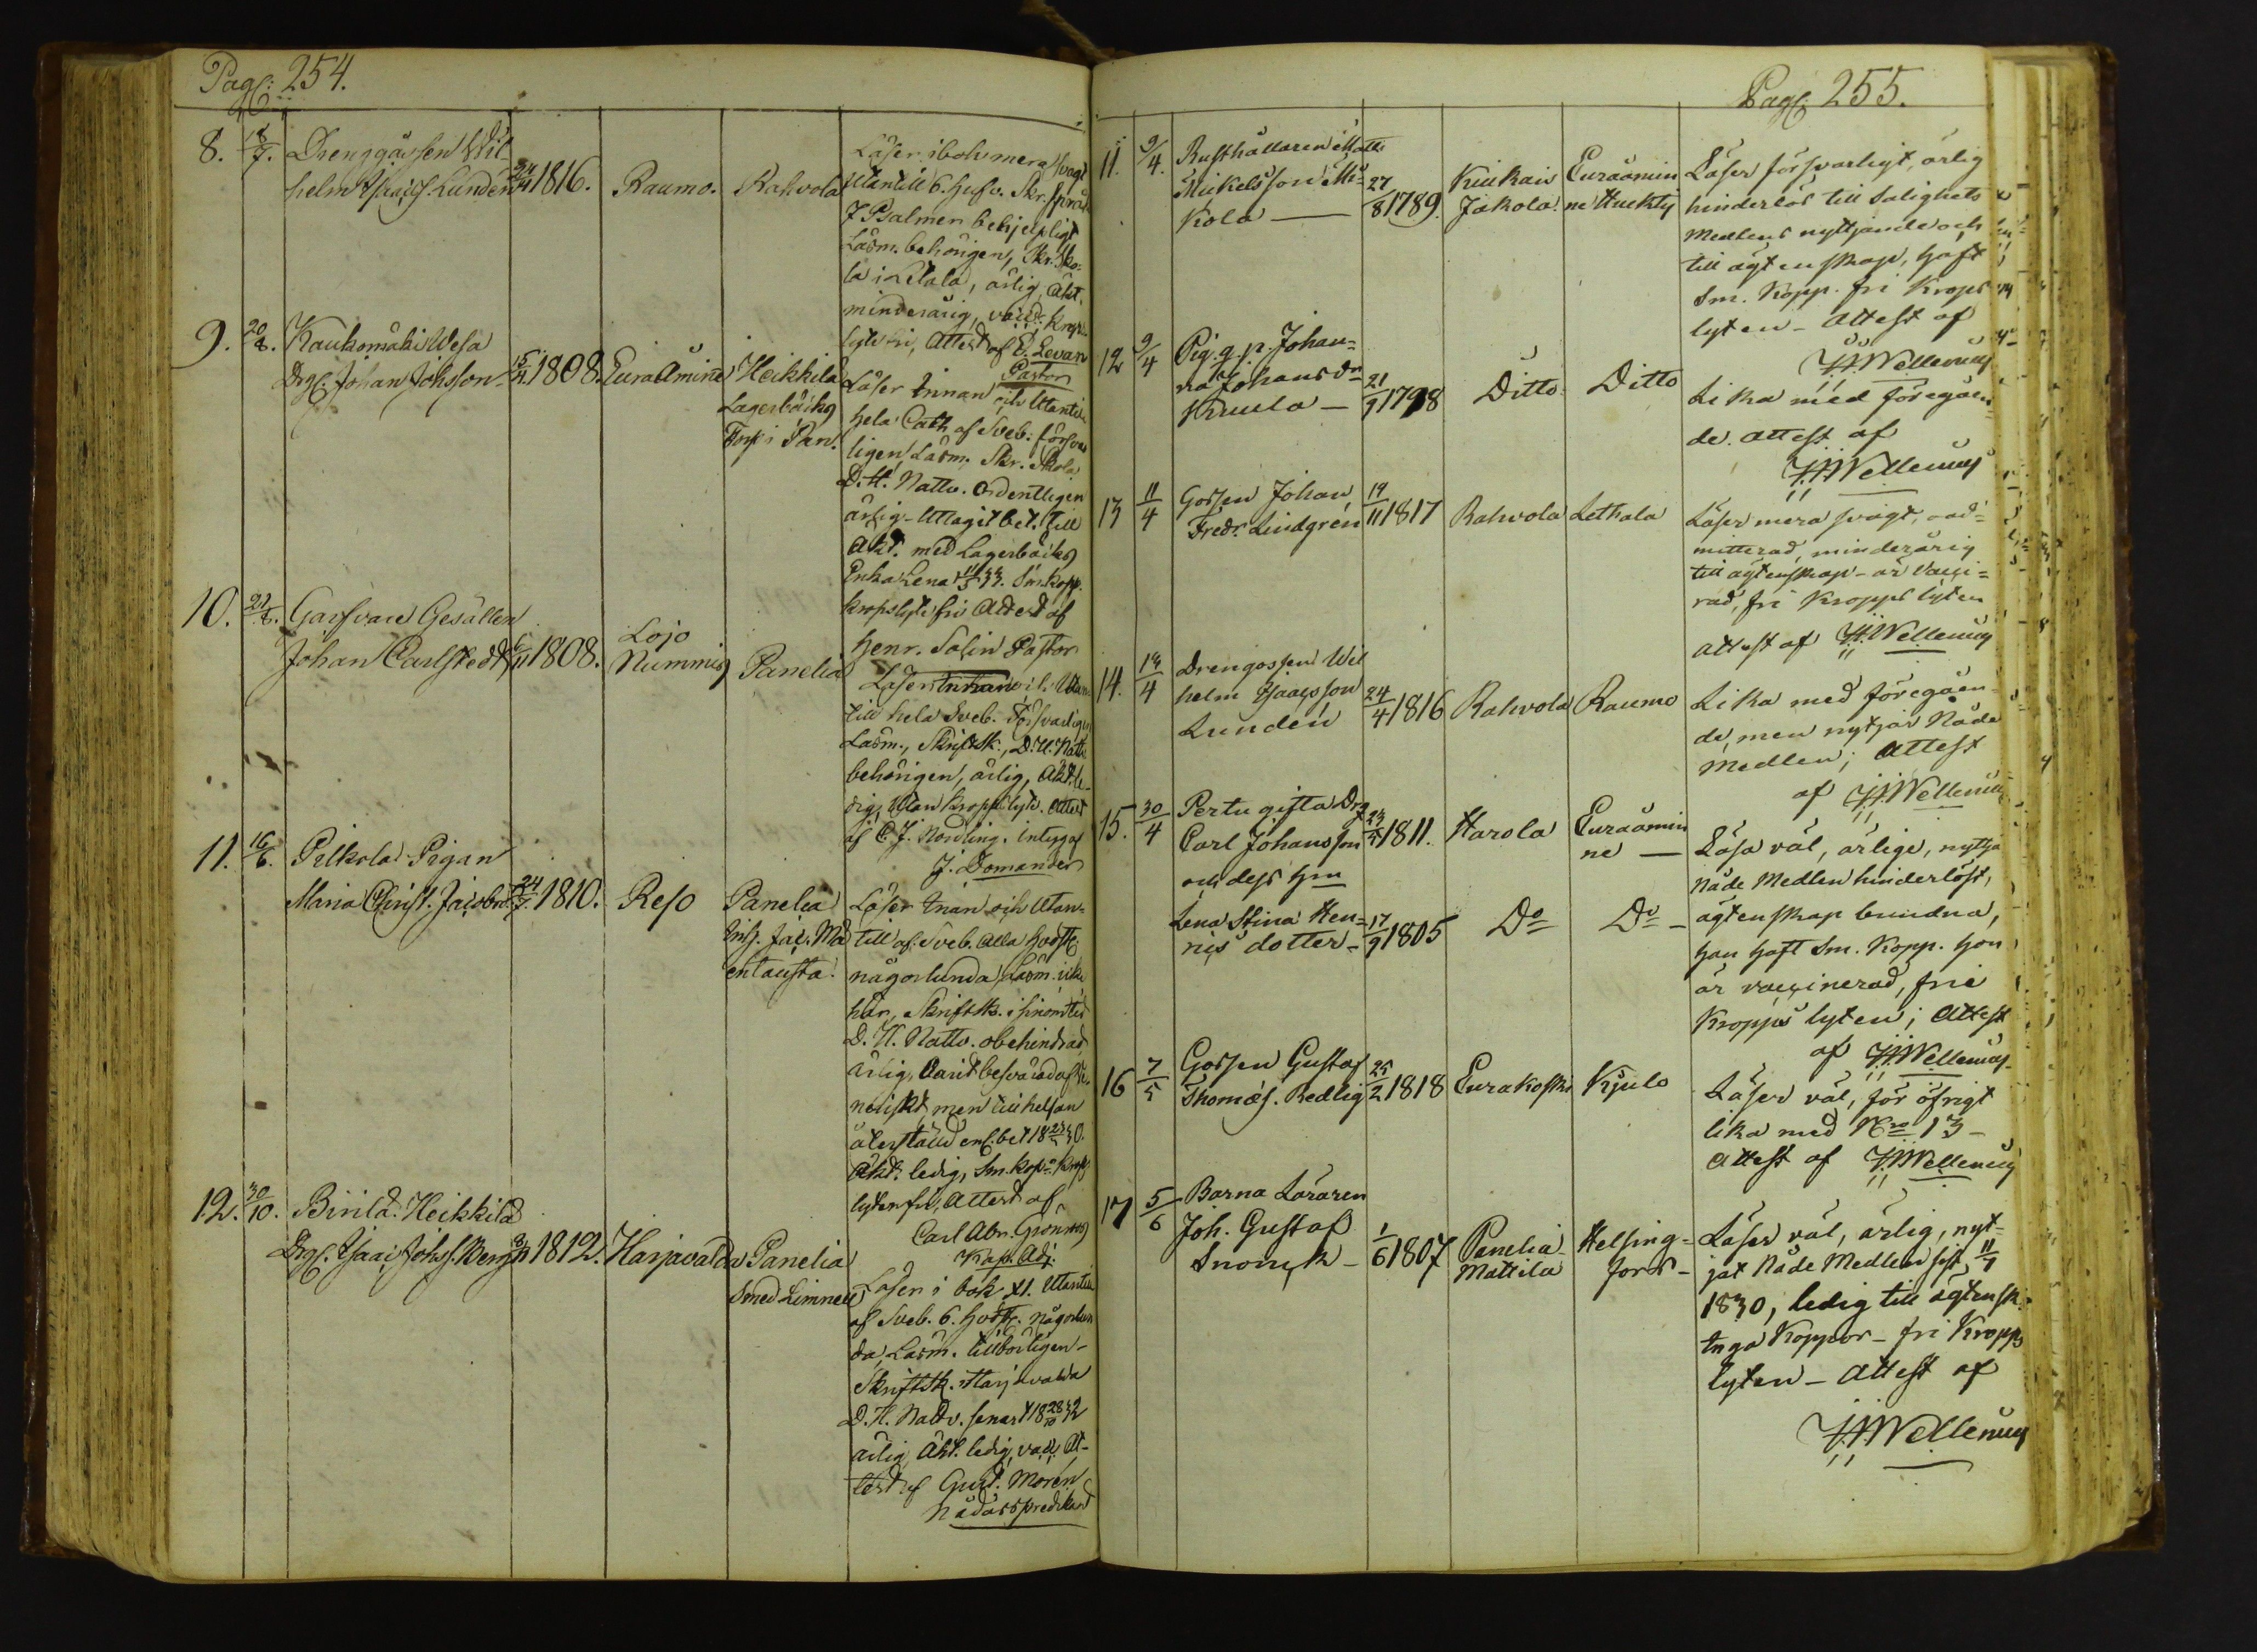 Pag: 254.
8. 18/7. Drenggåssen Wil-
helm Isaacss. Lundén 24/4 1816. Raumo. Rahvola
Läser i bok mera svagt
Utantill 6. Hufv. Skr. språk
7 Psalmer behjelpligt
Läsm. behörigen, Skr. Sko-
la i Letala, ärlig, Äkt.
minderårig, vacc. kropps
lyte fri, Attest af E. Levan
Pastor
9. 20/8. Kaukomäki Wesa
Drg. Johan Johsson 15/4. 1808. Eura Åminne Heikkilä
Lagerbäcks
Torp i Pan.
Läser Innan och Utantill
hela Cath. af Sveb. försvar
ligen Läsm. Skr. Skola
D. H. Nattv. Ordentligen
ärlig - Uttagit bet. till
Äkt. med Lagerbäcks
Enka Lena 11/3 33. Smkopp.
kropslyte fri Attest af
Henr. Salin Pastor
10. 21/8. Garfvare Gesällen
Johan Carlstedt 6/11 1808. Lojo
Nummis Panelia
Läser Innan och Utan
till hela Sveb. Försvarligen
Läsm., Skriftsk., D. H. Nattv.
behörigen, ärlig, Äkt. le-
dig, Utan kropps lyte. Attest
af C. J. Nordling. intyg af
J. Domander
11. 16/6. Pilkola Pigan
Maria Christ. Jacobsd. 24/7. 1810. Reso Panelia
Inh. Jac. Mä
entausta.
Läser Inan och Utan-
till af Sveb. Alla Hofst.
någorlunda, Läsm. icke
här, Skriftsk. i sinom tid
D. H. Nattv. obehindrad
ärlig, Varit besvärad af Ve-
neriskt, men till helsan
återstäld enl. bet 18 23/5 30.
Äkt. ledig, Sm. kop. Krops
lyten fri, Attest af
Carl Abr. Grönroos
Kap. Adj.
12. 30/10. Birila Heikkilä
Drg. Isaac Johss. Berg 1812. Harjavalda Panelia
Smed Limnell
Läser i bok xt. Utantill
af Sveb. 6. Hofst. någorlun
da, Läsm. tillbörligen -
Skriftsk. Harjavalda
D. H. Nattv. senast 18 28/10 32
ärlig, Äkt. ledig, vacc. At-
test af Gust. Morén
Nådårspredikant
Pag: 255.
11. 9/4. Rusthållaren Matts
Mickelsson Mi-
kola — 27/8 1789. Kiukais
Jakola. Euraåmin
ne Huckty
Läser försvarligt, ärlig
hinderlös till Salighets
Medlens nyttjande och
till ägtenskap, haft
Sm. Kopp. fri Kropps
lyten - Attest af
JHWellenius
12 9/4 Pig. g.p. Johan-
na Johansdr
Kruula — 21/9 1798 Ditto Ditto
Lika med föregåen-
de. Attest af
JHWellenius
13 11/4 Gossen Johan
Fredr. Lindgrén 19/11 1817 Rahvola Lethala
Läser mera svagt, oad-
mitterad, minderårig
till ägtenskap - är Vacci-
rad, fri Kropps lyten
Attest af JHWellenius
14. 14/4 Drengossen Wil
helm Isaacsson
Lundén 24/4 1816 Rahvola Raumo
Lika med föregåen-
de, men nytjar Nåde
Medlen; Attest
af JHWellenius
15. 30/4 Pertu gifta Drg
Carl Johansson 1811. Harola Euraåmin
ne —
och dess hu
Lena Stina Hen-
rics dotter - 17/9 1805 Do Do -
Läsa väl, ärlige, nyttja
Nåde Medlen hinderlöst,
ägtenskap bundna,
han haft Sm. Kopp. hon
är vaccinerad, frie
Kropps lyten; Attest
af JHWellenius
16 7/5 Gossen Gustaf
Thomæs. Redlig 25/2 1818 Eurakoski Kjulo
Läser väl, för öfrigt
lika med No 13 -
Attest af JHWellenius
17 5/6 Barna Läraren
Joh. Gustaf
Snonck - 1/6 1807 Panelia
Mattila Helsing-
fors -
Läser väl, ärlig, nyt-
jat Nåde Medlen sist 11/7
1830, ledig till ägtensk:
Inga Koppor - fri Kropps
lyten - Attest af
JHWellenius